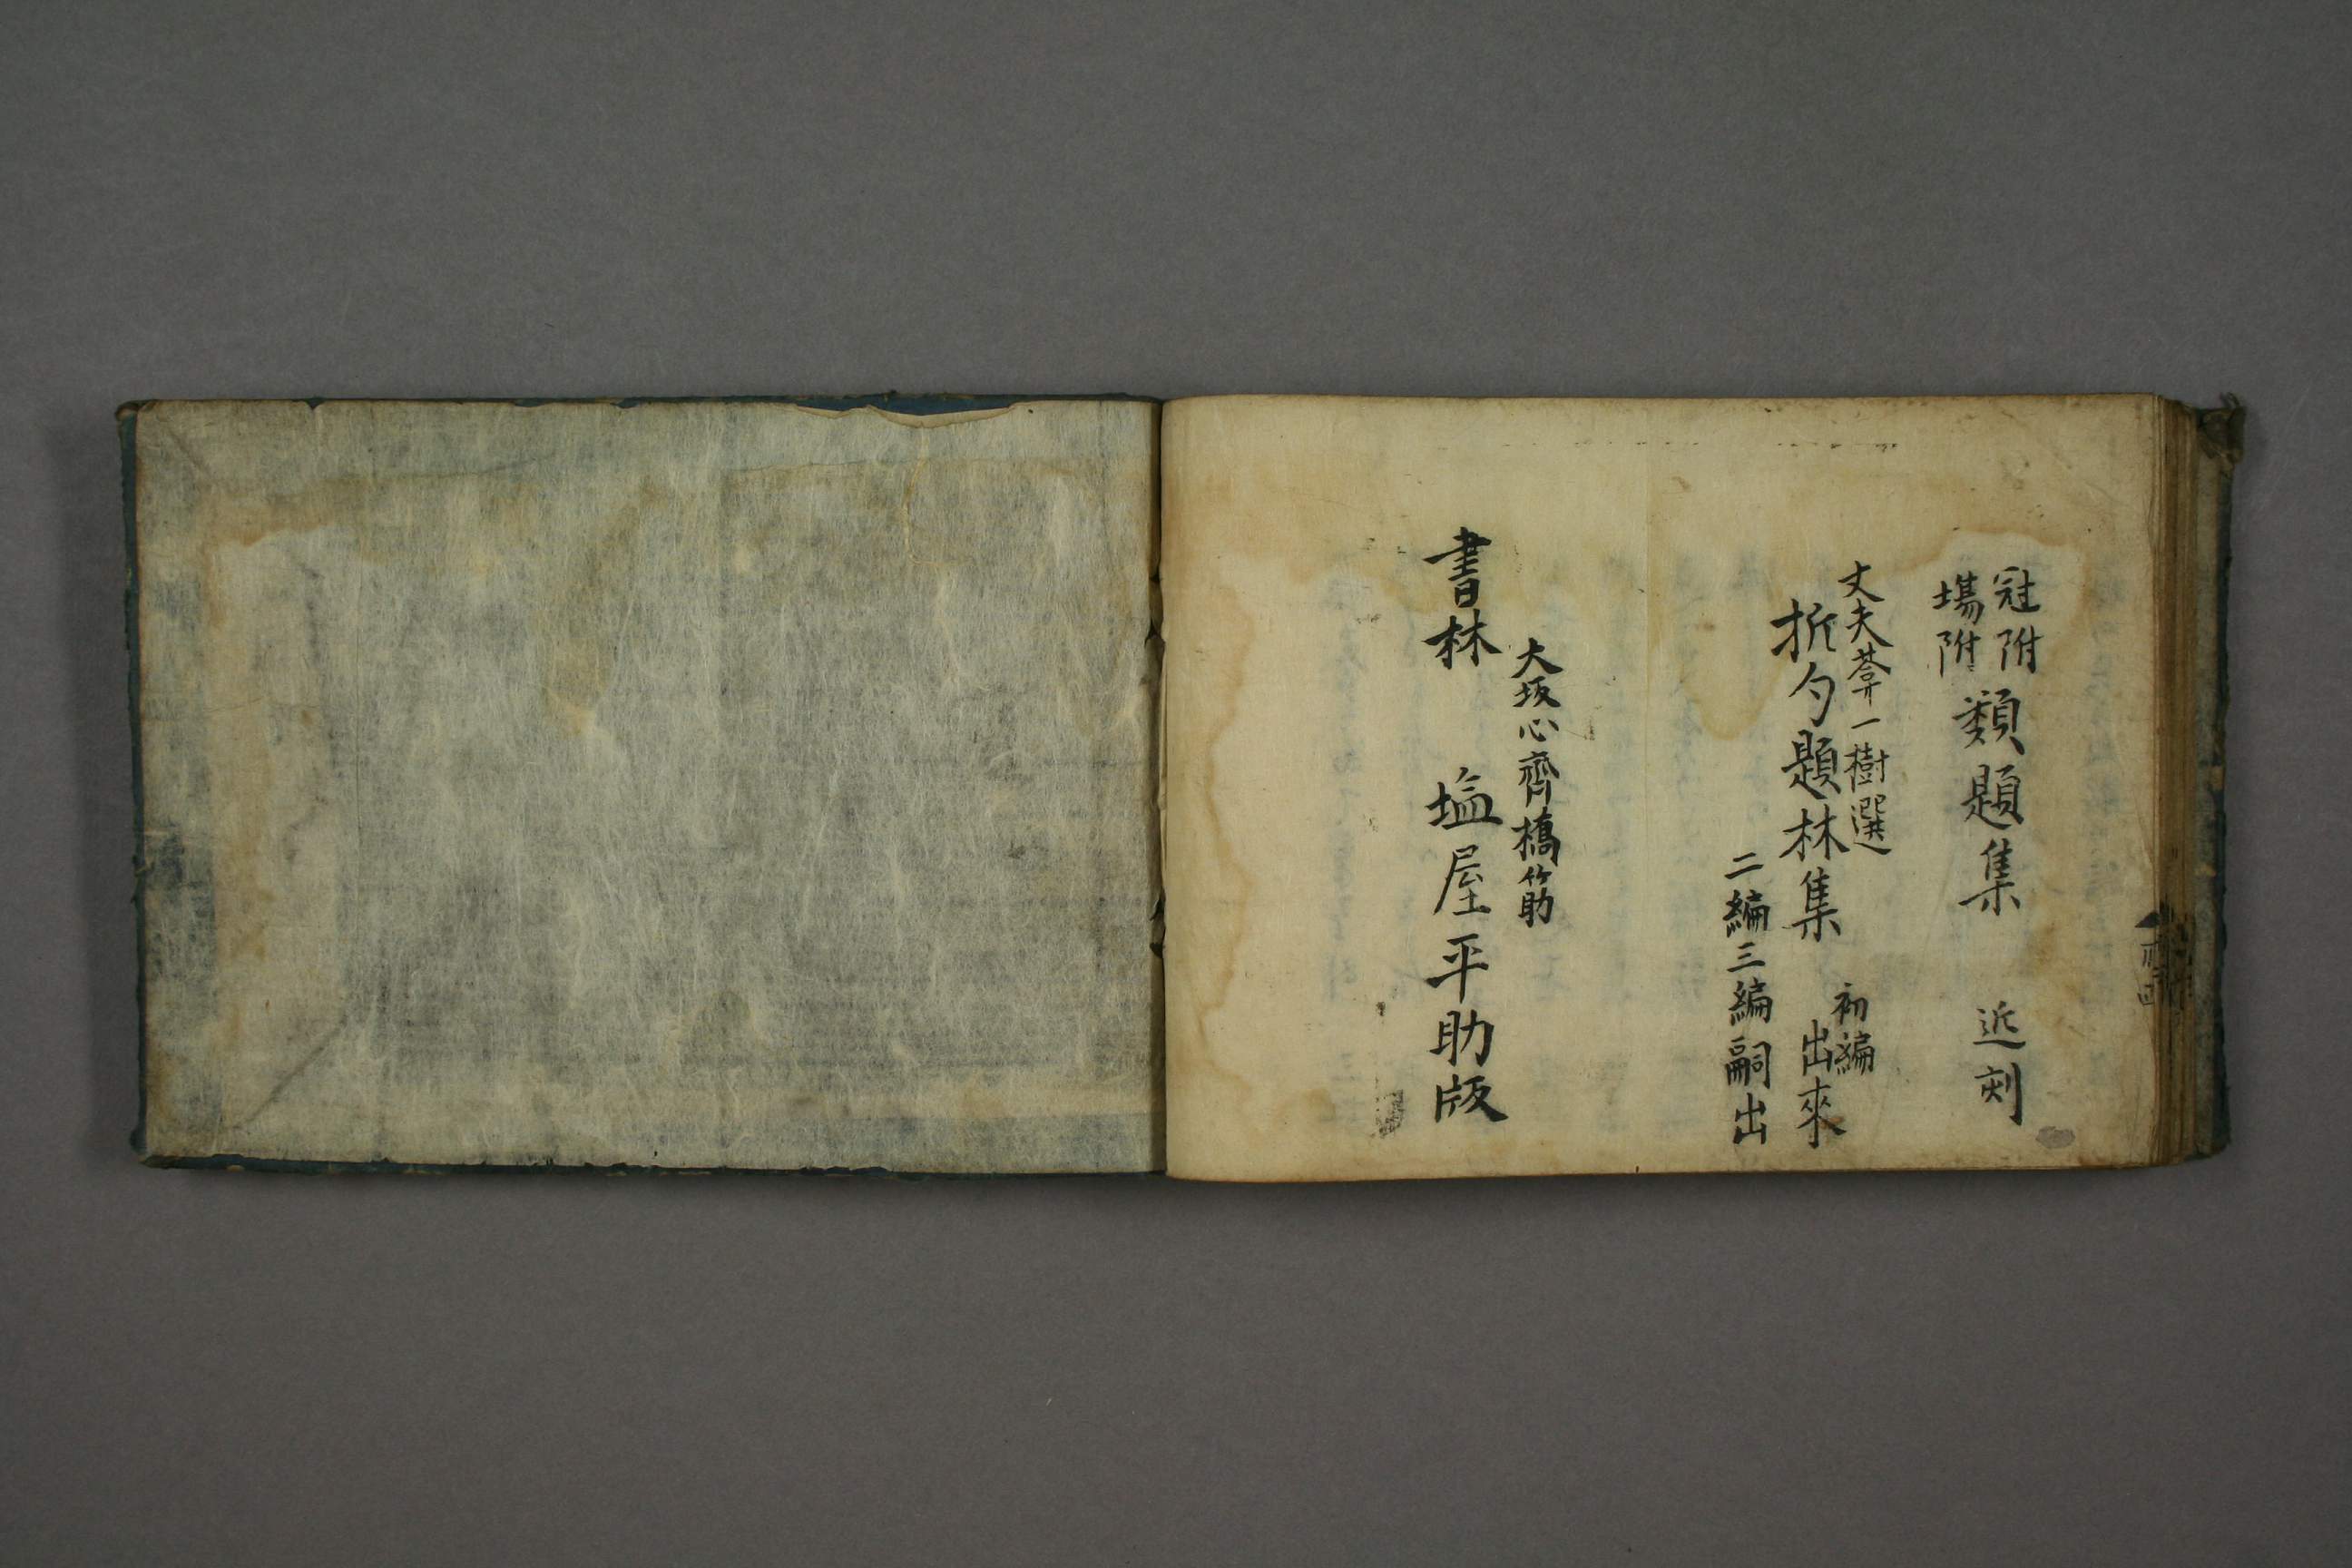 冠附
塲附
類題集 近刻
丈夫葊一樹選
折句題林集 初編
出來
二編三編嗣出
大坂心齊橋筋
書林 塩屋平助版